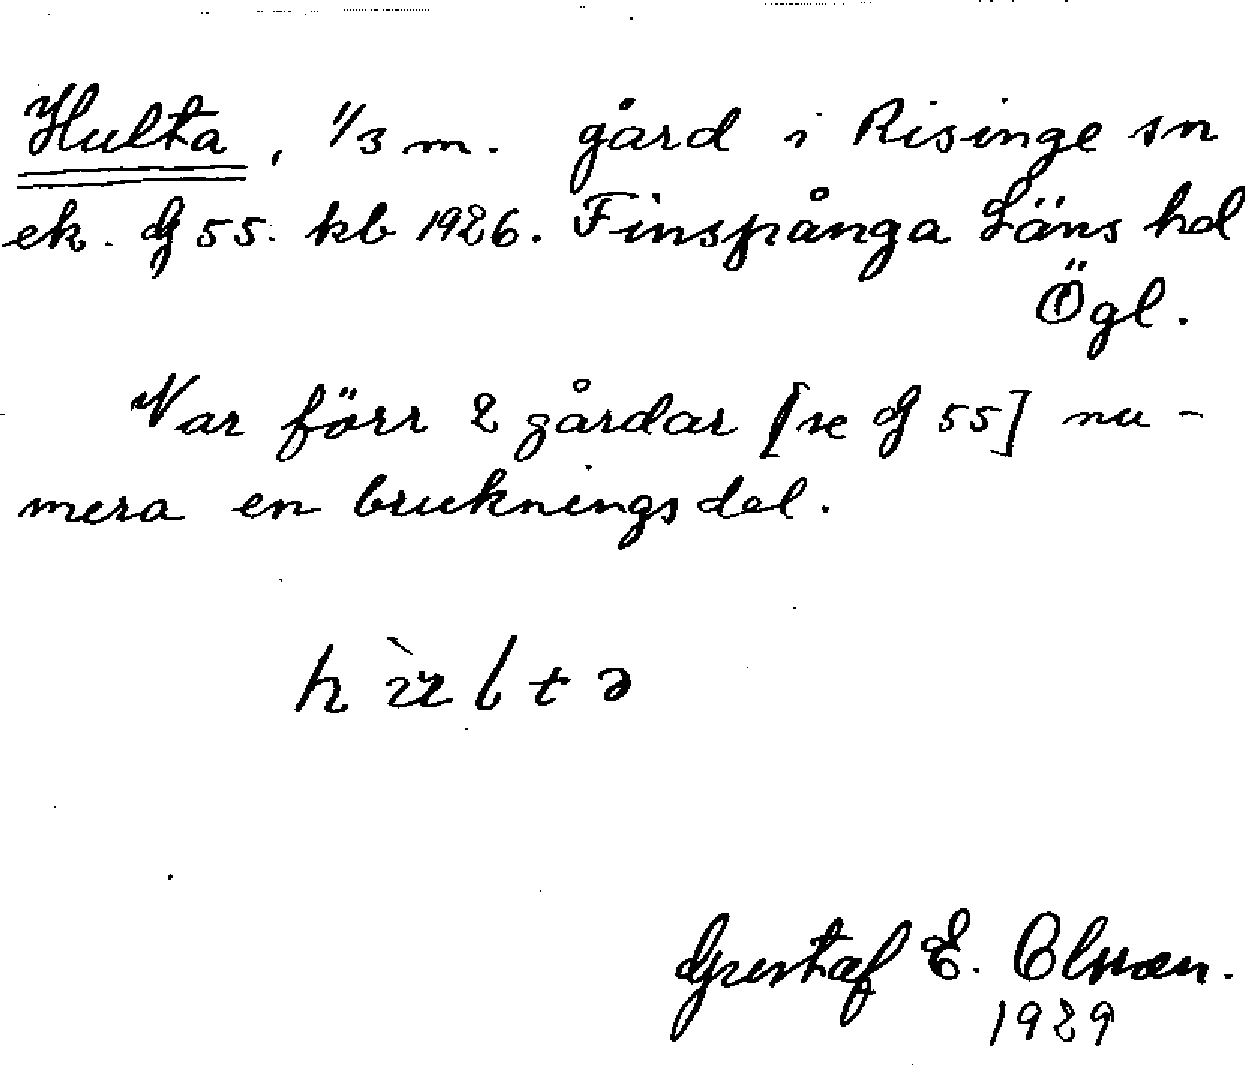 Hulta, 1/3 m. gård i Risinge sn
ek. G 55. kb 1926. Finspånga Läns hd
Ögl.
Var förr 2 gårdar [se G 55] nu-
mera en brukningsdel.
Gustaf E. Olsson.
1929